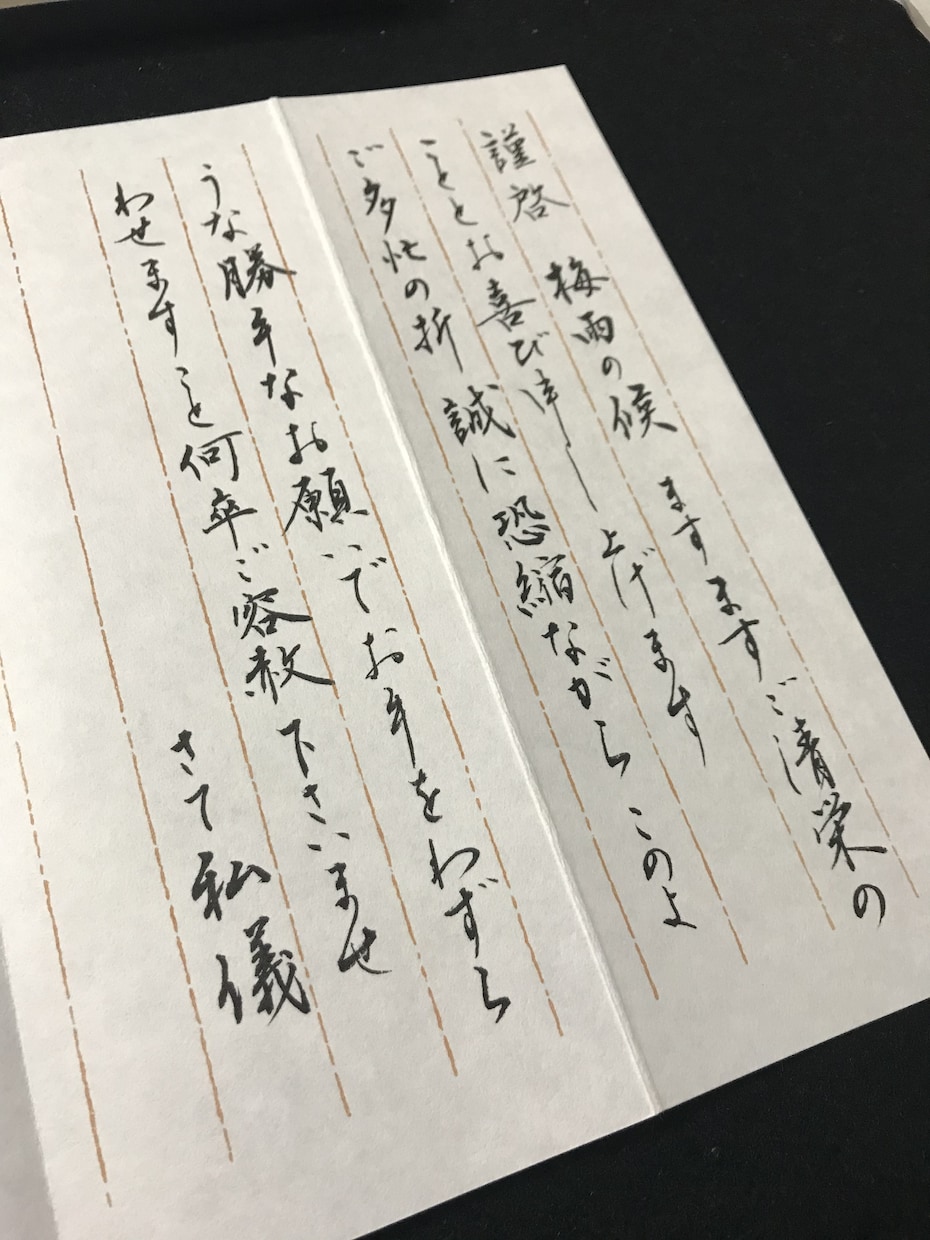 謹啓 梅雨の候 ますますご清栄の
こととお喜び申し上げます
ご多忙の折 誠に恐縮ながら このよ
うな勝手なお願いでお手をわずら
わせますこと何卒ご容赦下さいませ
さて私儀